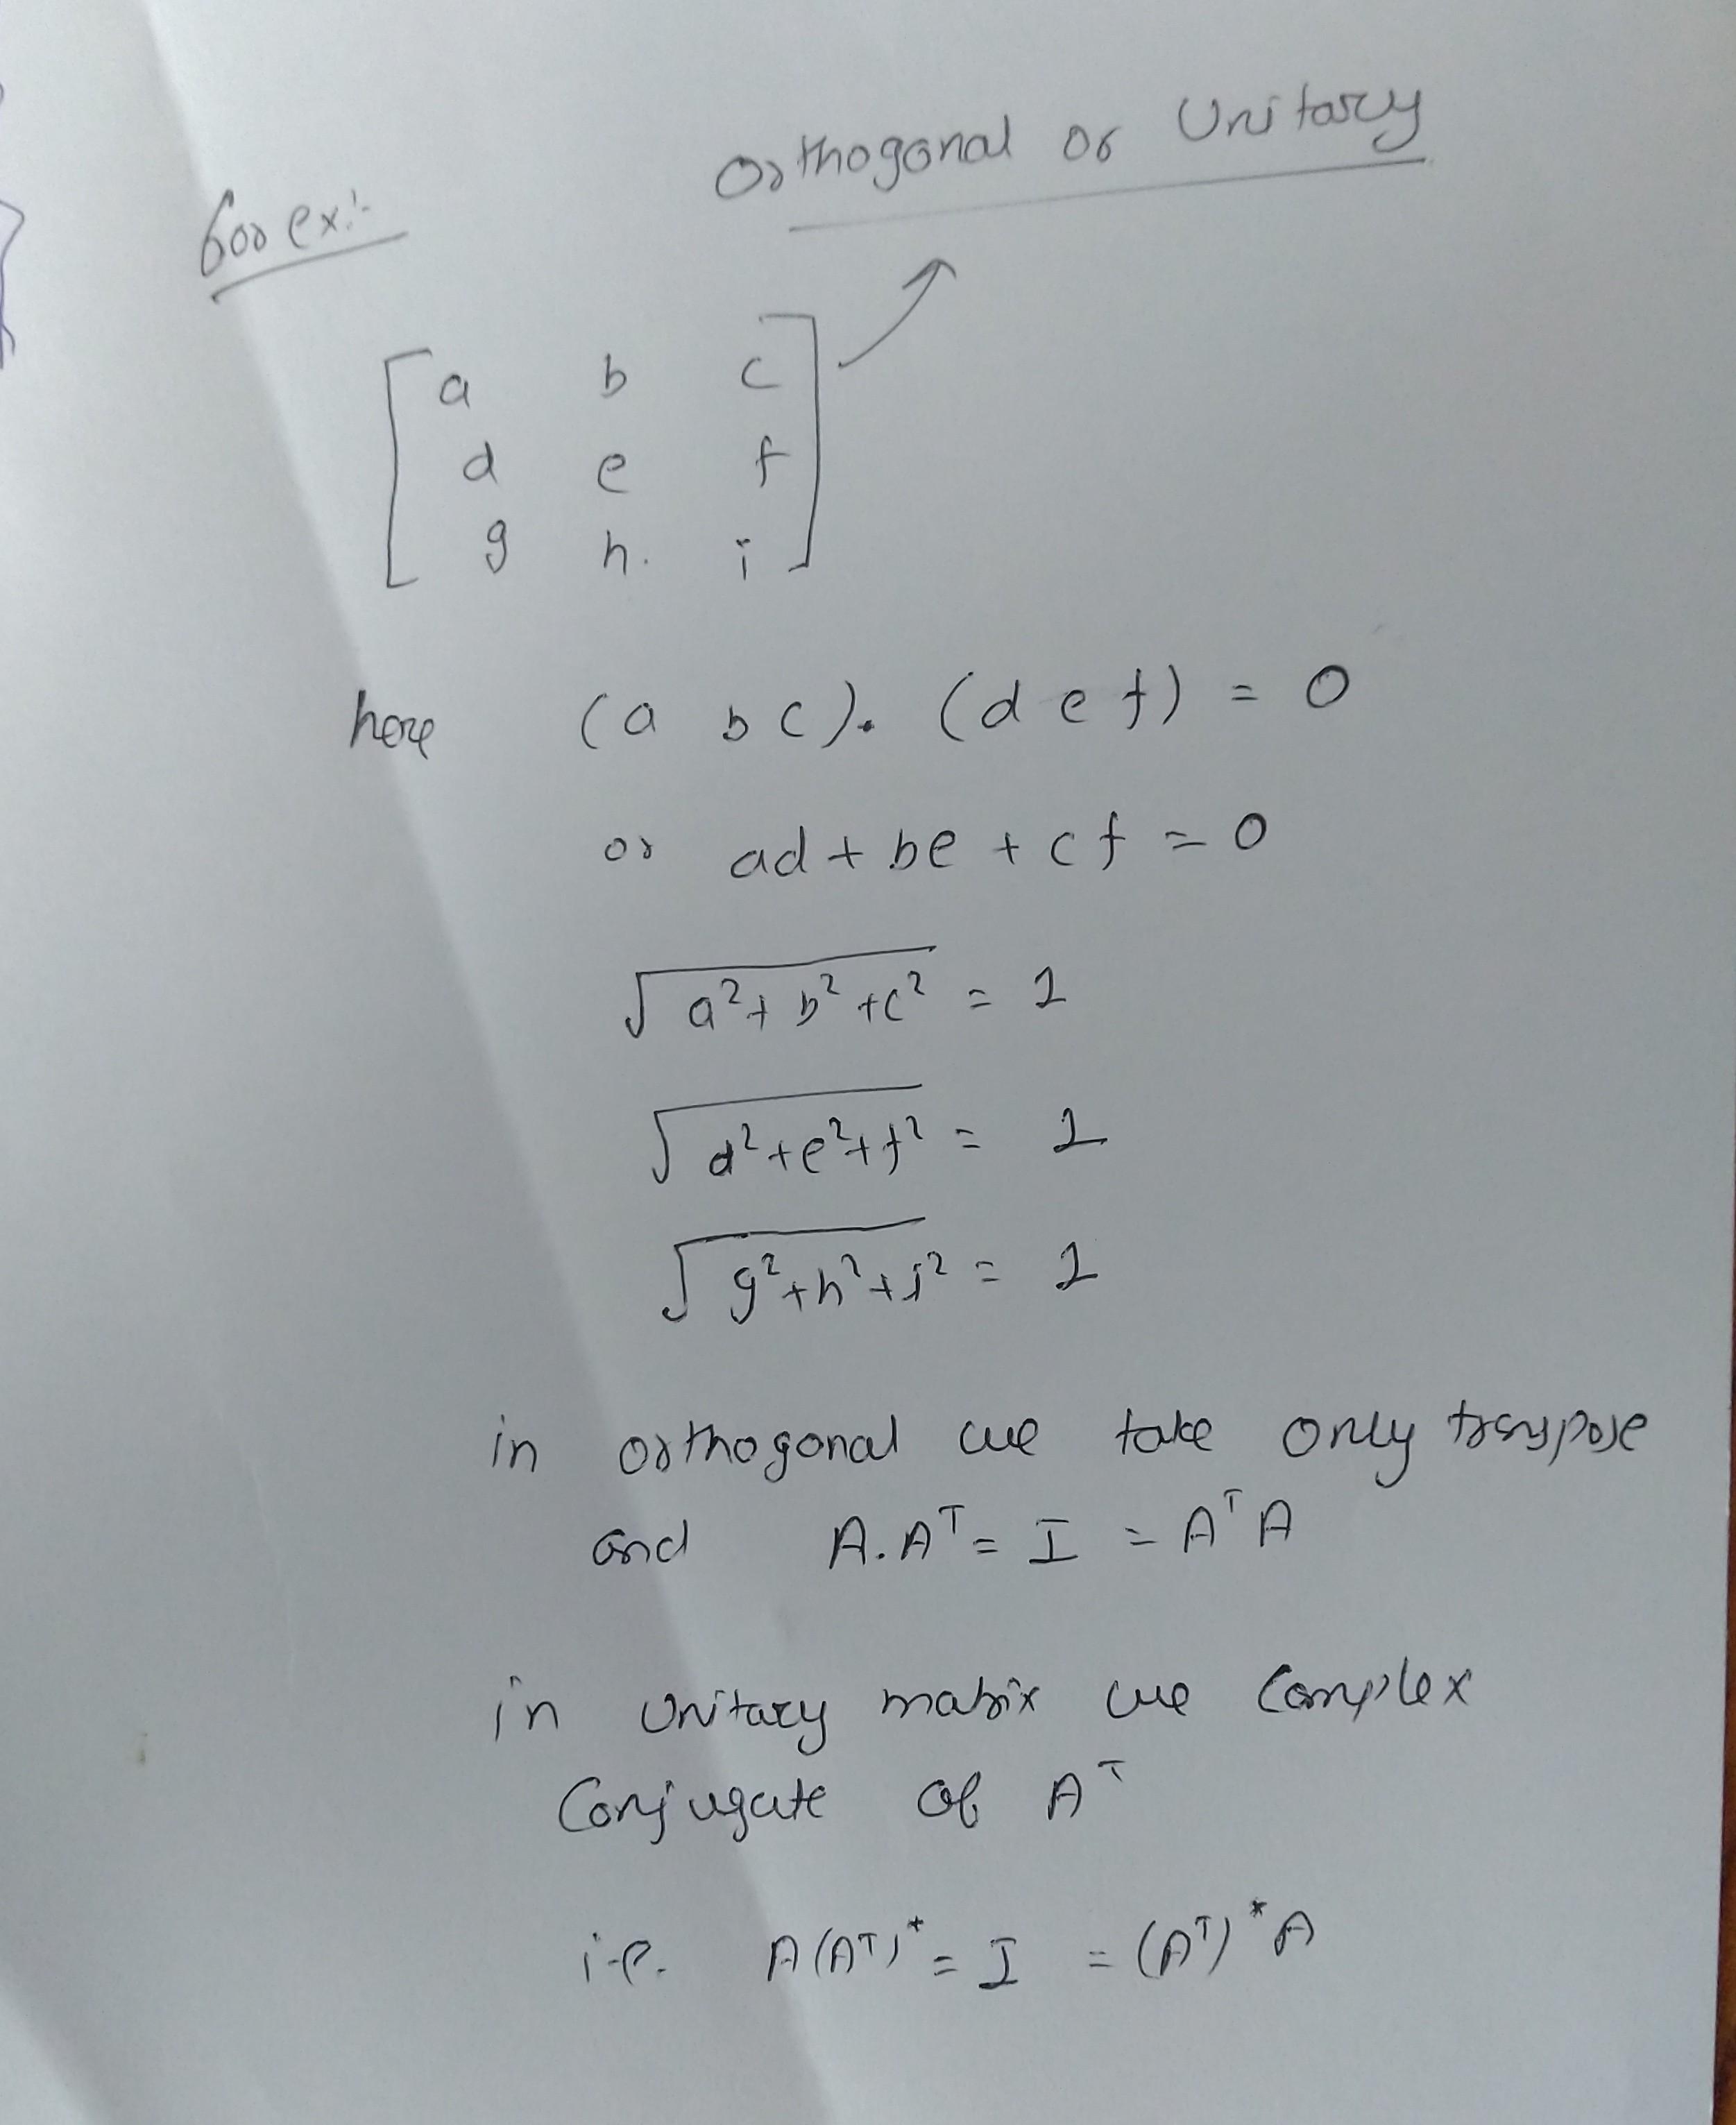 Orthogonal or Unitary
for ex:-
[a b c
d e f
g h. i]
here (a b c). (d e f) = 0
or ad + be + cf = 0
√a²+b²+c² = 1
√d²+e²+f² = 1
√g²+h²+i² = 1
in orthogonal we take only transpose
and A.Aᵀ = I = AᵀA
in Unitary matrix we Complex
Conjugate of Aᵀ
i.e. A(Aᵀ)* = I = (Aᵀ)*A